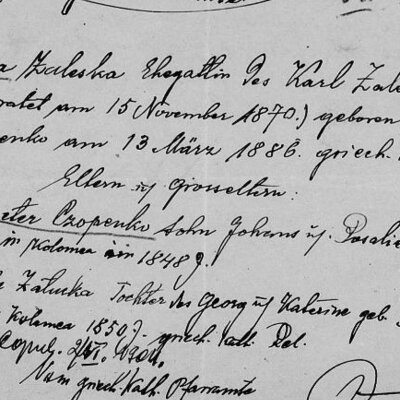 a Zaleska Ehegattin des Karl Zale
ratet am 15 November 1870.) geboren
enko am 13 März 1886. griech.
Eltern u/ Grosseltern:
eter Czopenko sohn Johans u/. Rosalie
in Kolomea in 1848 J.
Zalucka Tochter des Georg u/ Katerine geb.
Kolomea 1850 J. griech. kath. Rel.
Copul. 2/VI. 1904.
Vom griech. kath. Pfarramte